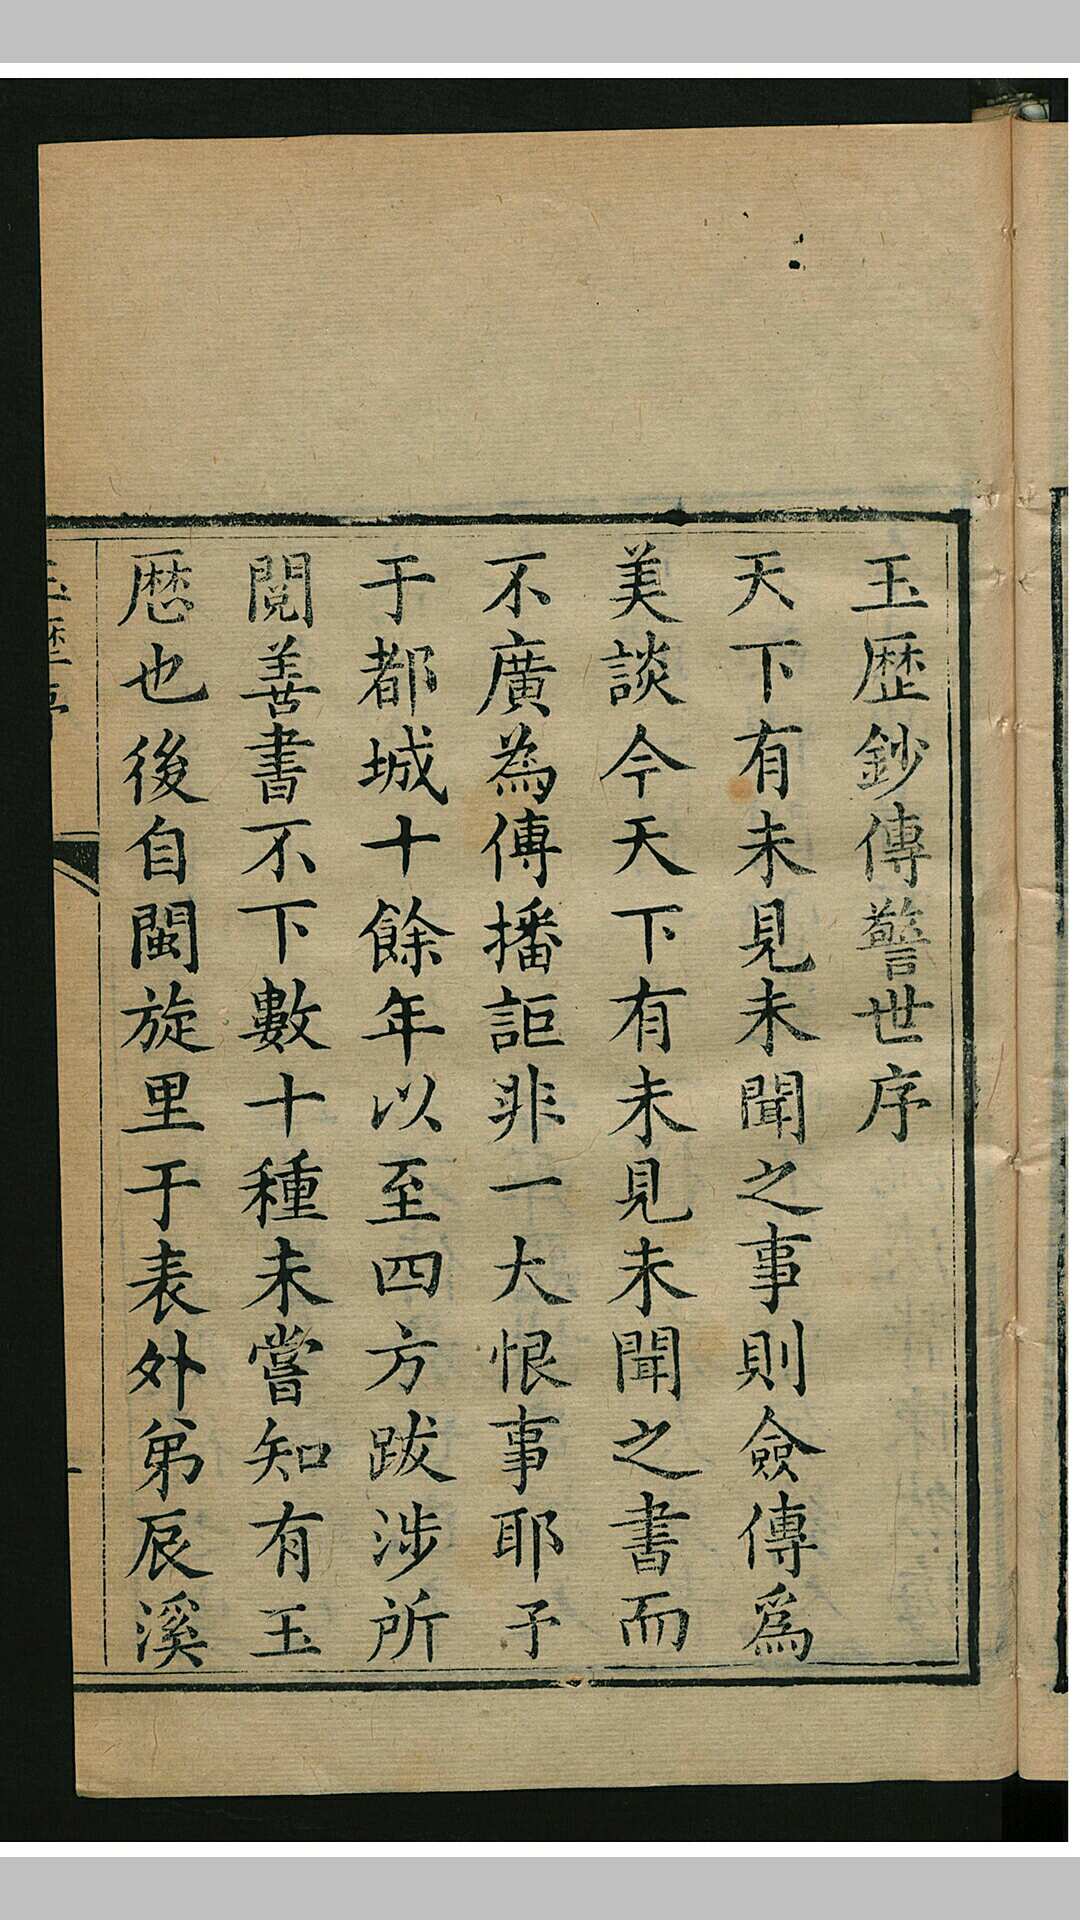 玉歴鈔傳警世序
天下有未見未聞之事則僉傳爲
美談今天下有未見未聞之書而
不廣為傳播詎非一大恨事耶予
于都城十餘年以至四方跋涉所
閱善書不下數十種未嘗知有玉
厯也後自閩旋里于表外弟辰溪